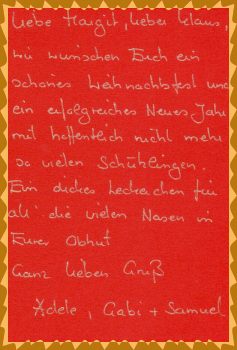 Liebe Margit, lieber Klaus,
wir wünschen Euch ein
schönes Weihnachtsfest und
ein erfolgreiches Neues Jahr
mit hoffentlich nicht mehr
so vielen Schützlingen.
Ein dickes Leckerchen für
all die vielen Nasen in
Eurer Obhut
Ganz lieben Gruß
Adele, Gabi + Samuel